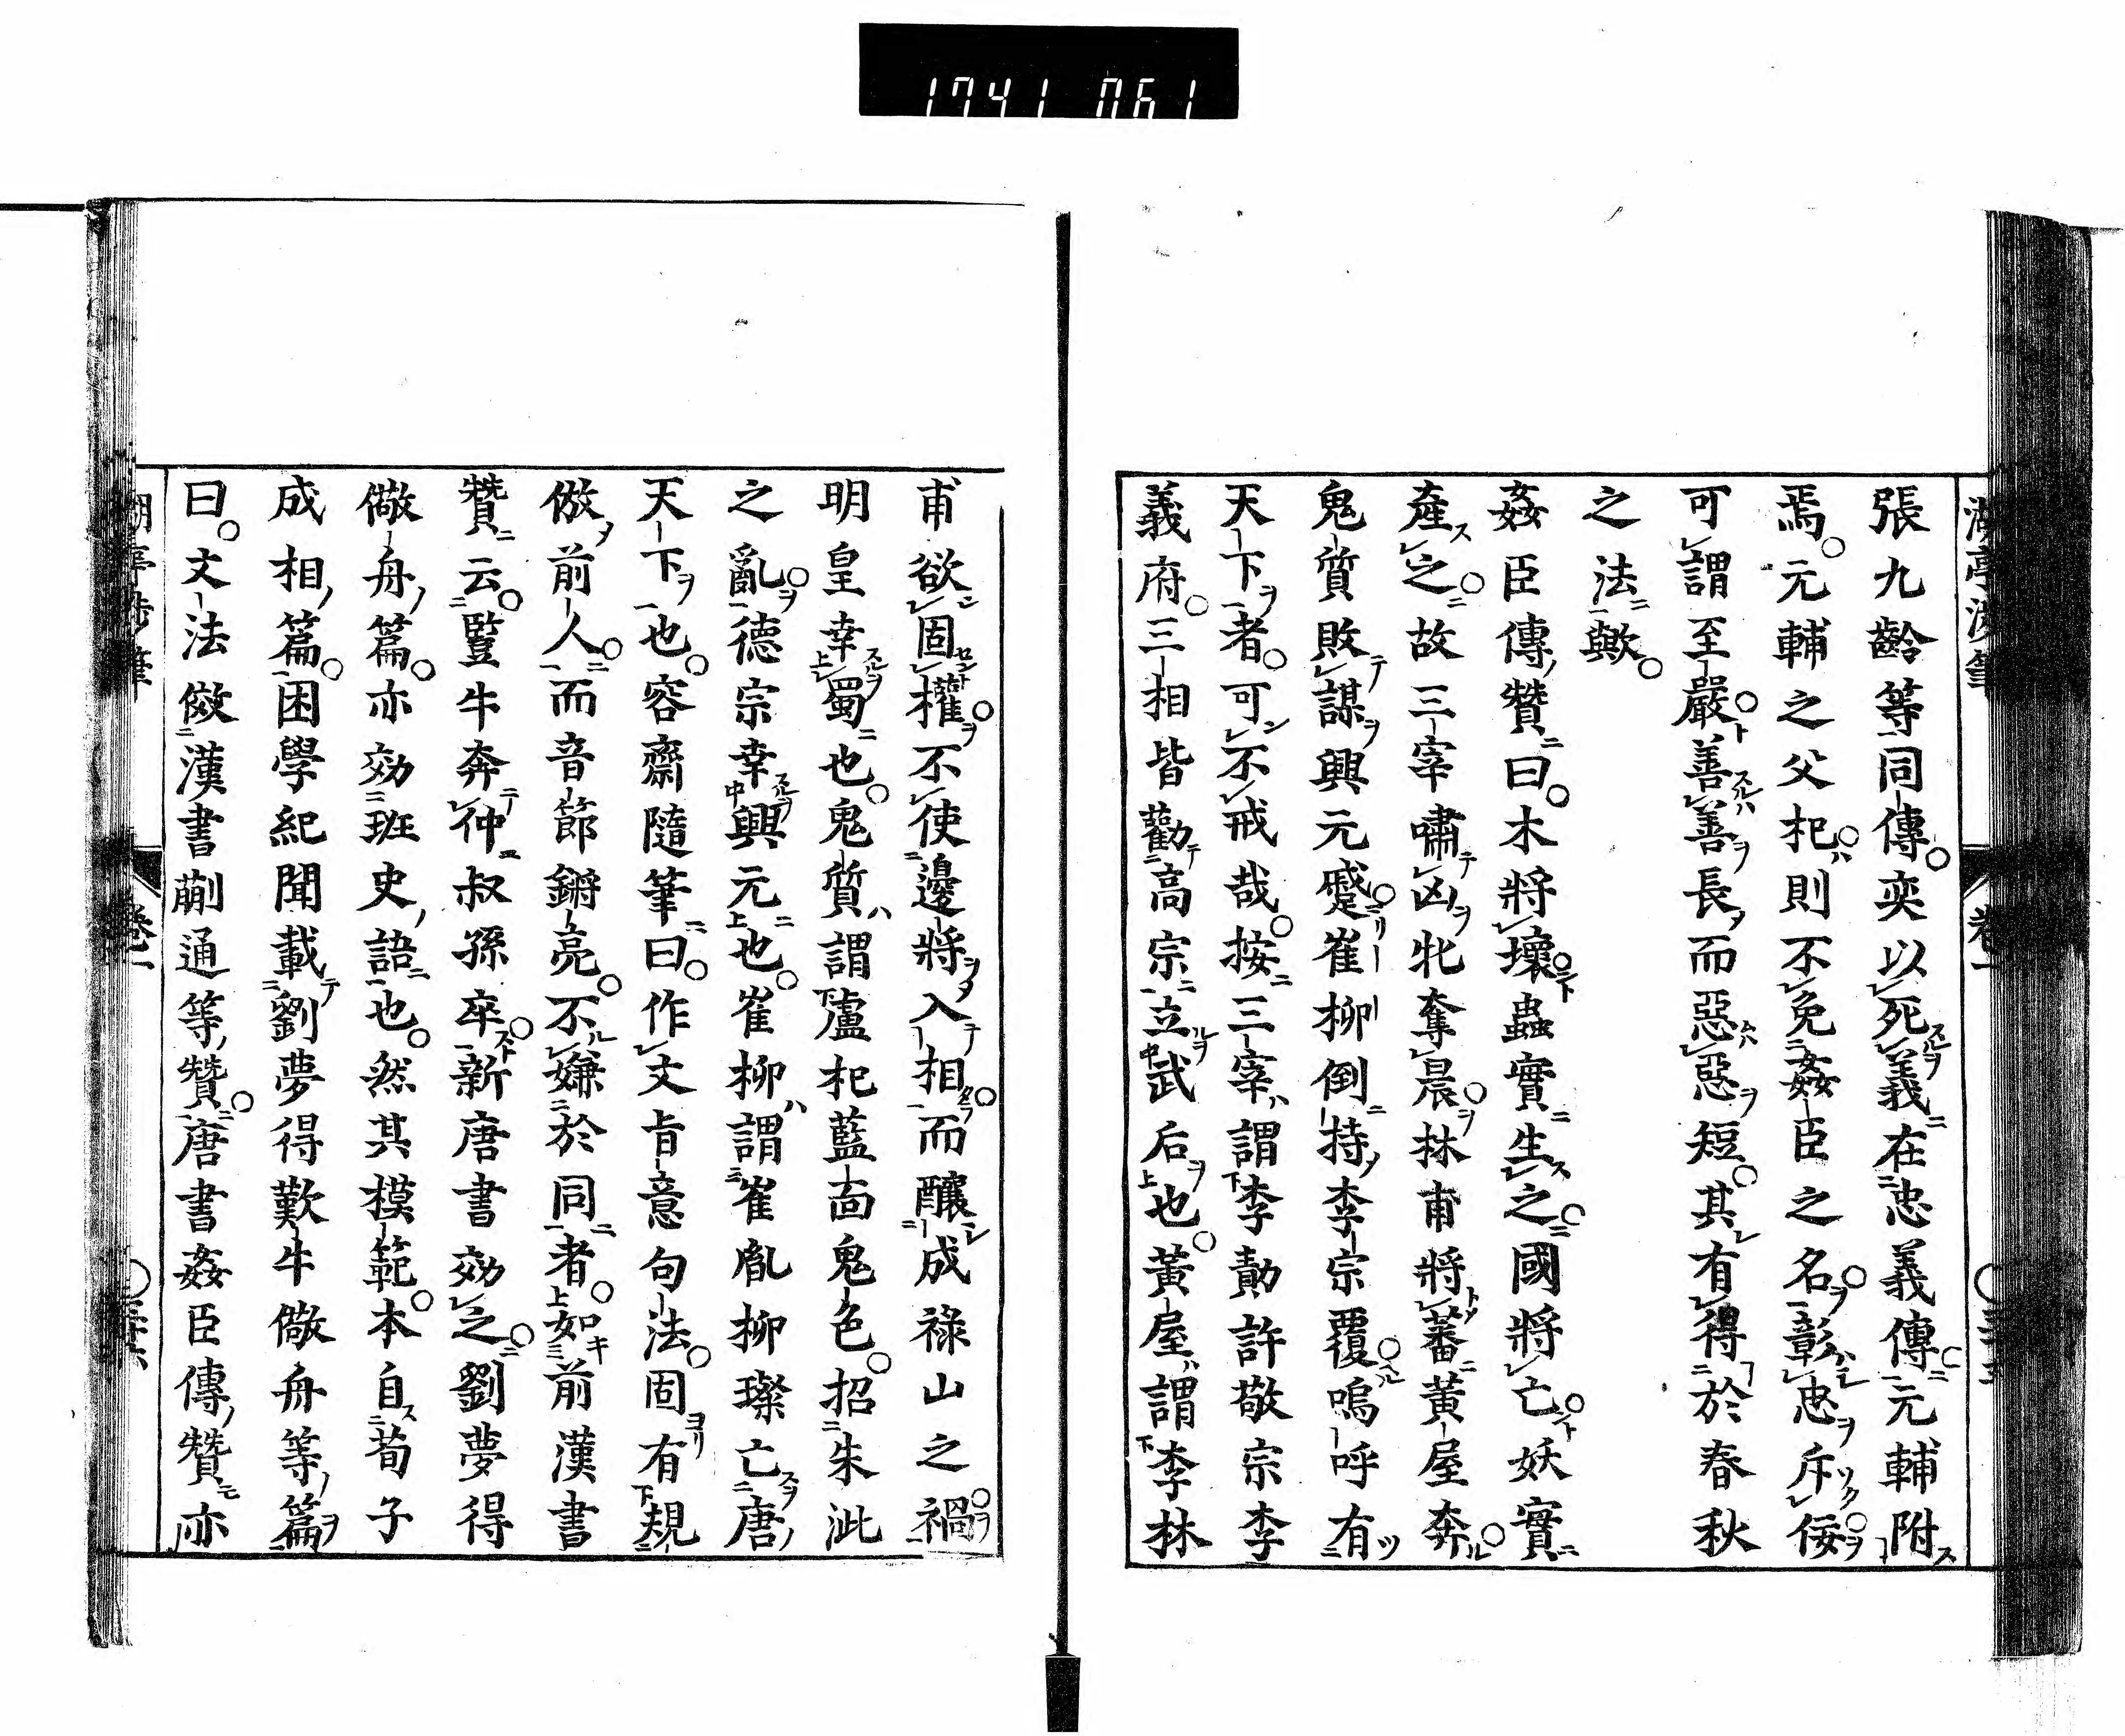 1741 061
張九齡等同傳奕以死義在忠義傳元輔附
焉元輔之父杞則不免姦臣之名彰忠斥佞
可謂至嚴善善長而惡惡短其有得於春秋
之法歟
姦臣傳贊曰木將壞蟲實生之國將亡妖實
產之故三宰嘯凶牝奪晨林甫將蕃黃屋奔
鬼質敗謀興元蹙崔柳倒持李宗覆嗚呼有
天下者可不戒哉按三宰謂李勣許敬宗李
義府三相皆勸高宗立武后也黃屋謂李林
甫欲固權不使邊將入相而釀成祿山之禍
明皇幸蜀也鬼質謂盧杞藍面鬼色招朱泚
之亂德宗幸興元也崔柳謂崔胤柳璨亡唐
天下也容齋隨筆曰作文旨意句法固有規
倣前人而音節鏘亮不嫌於同者如前漢書
贊云豎牛奔仲叔孫卒新唐書効之劉夢得
儆舟篇亦効班史語也然其模範本自荀子
成相篇困學紀聞載劉夢得歎牛儆舟等篇
曰文法倣漢書蒯通等贊唐書姦臣傳贊亦